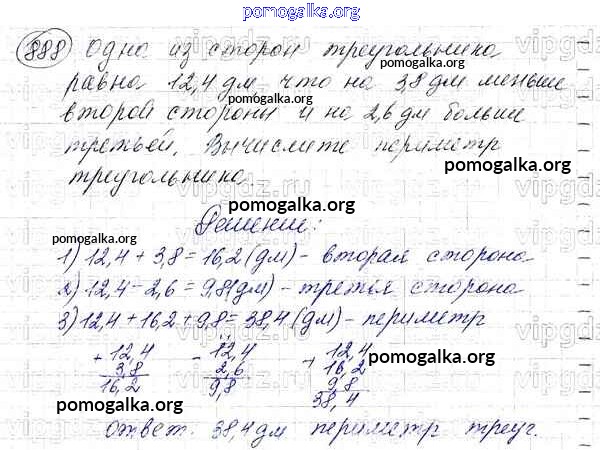 pomogalka.org
888 Одна из сторон треугольника
равна 12,4 дм, что на 3,8 дм меньше
pomogalka.org
второй стороны и на 2,6 дм больше
третьей. Вычислите периметр
pomogalka.org
треугольника
pomogalka.org
Решение:
pomogalka.org
1) 12,4 + 3,8 = 16,2 (дм) - вторая сторона
2) 12,4 - 2,6 = 9,8 (дм) - третья сторона
3) 12,4 + 16,2 + 9,8 = 38,4 (дм) - периметр
+ 12,4 - 12,4 + 12,4
pomogalka.org
3,8 2,6 16,2
16,2 9,8 9,8
38,4
pomogalka.org
ответ: 38,4 дм периметр треуг.
pomogalka.org